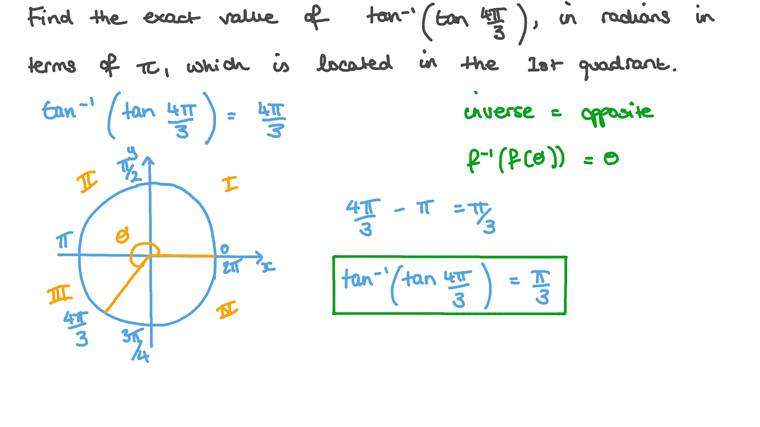 Find the exact value of tan⁻¹(tan 4π/3), in radians in
terms of π, which is located in the 1st quadrant.
tan⁻¹(tan 4π/3) = 4π/3
inverse = opposite
f⁻¹(f(θ)) = θ
y
π/2
II
I
θ
π
0
2π
x
III
4π/3
3π/4
IV
4π/3 - π = π/3
tan⁻¹(tan 4π/3) = π/3